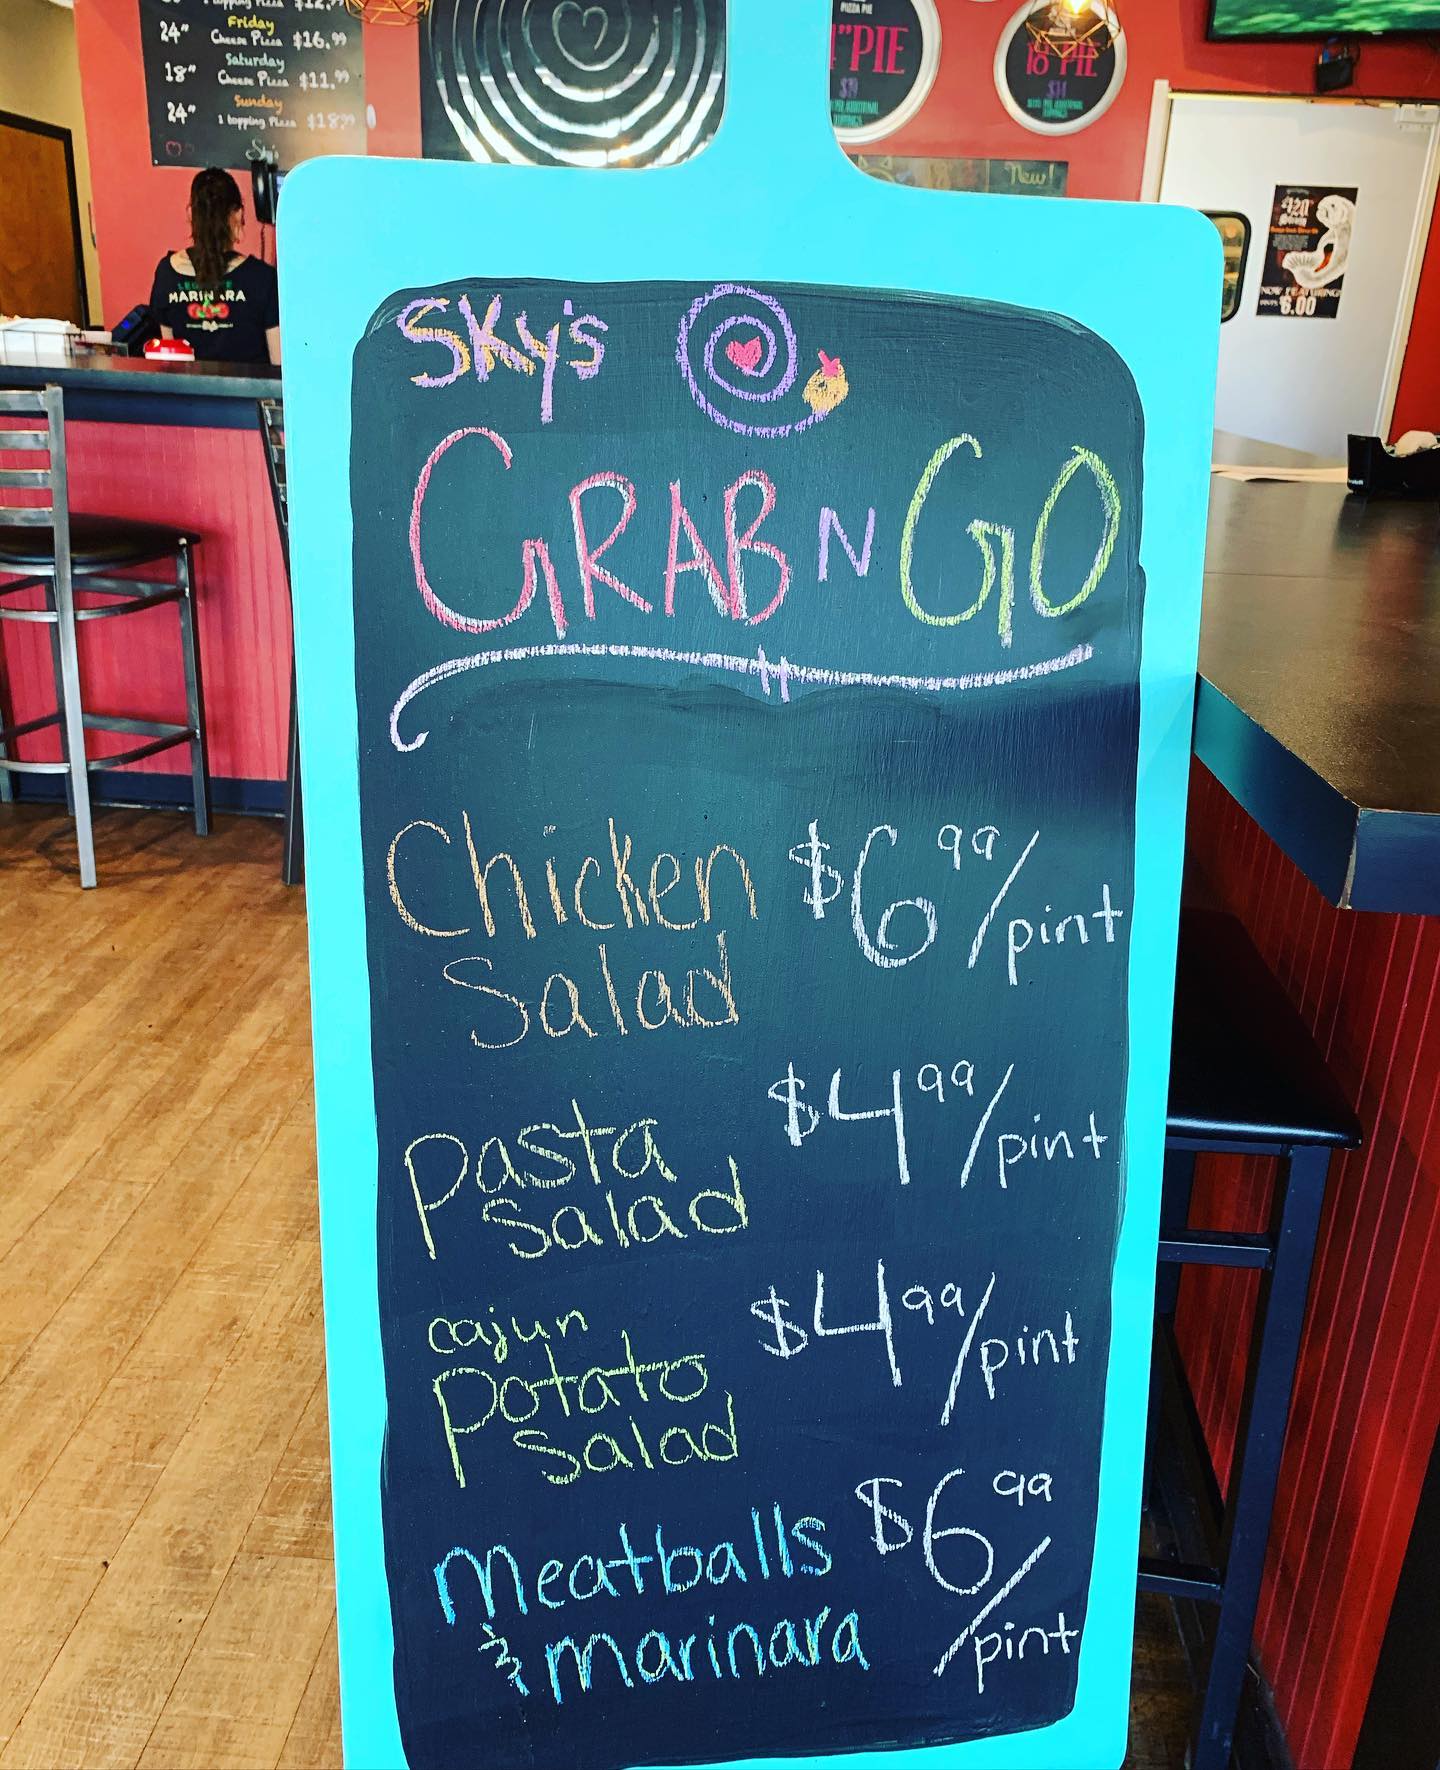 1 topping Pizza $12.99
Friday
24" Cheese Pizza $16.99
Saturday
18" Cheese Pizza $11.99
Sunday
24" 1 topping Pizza $18.99
Sky's
PIZZA PIE
"PIE
18" PIE
$14
New!
MARINARA
NOW FEATURING
6.00
Sky's
GRAB N GO
Chicken $6.99/pint
Salad
Pasta $4.99/pint
Salad
cajun
Potato $4.99/pint
Salad
Meatballs $6.99/pint
& Marinara